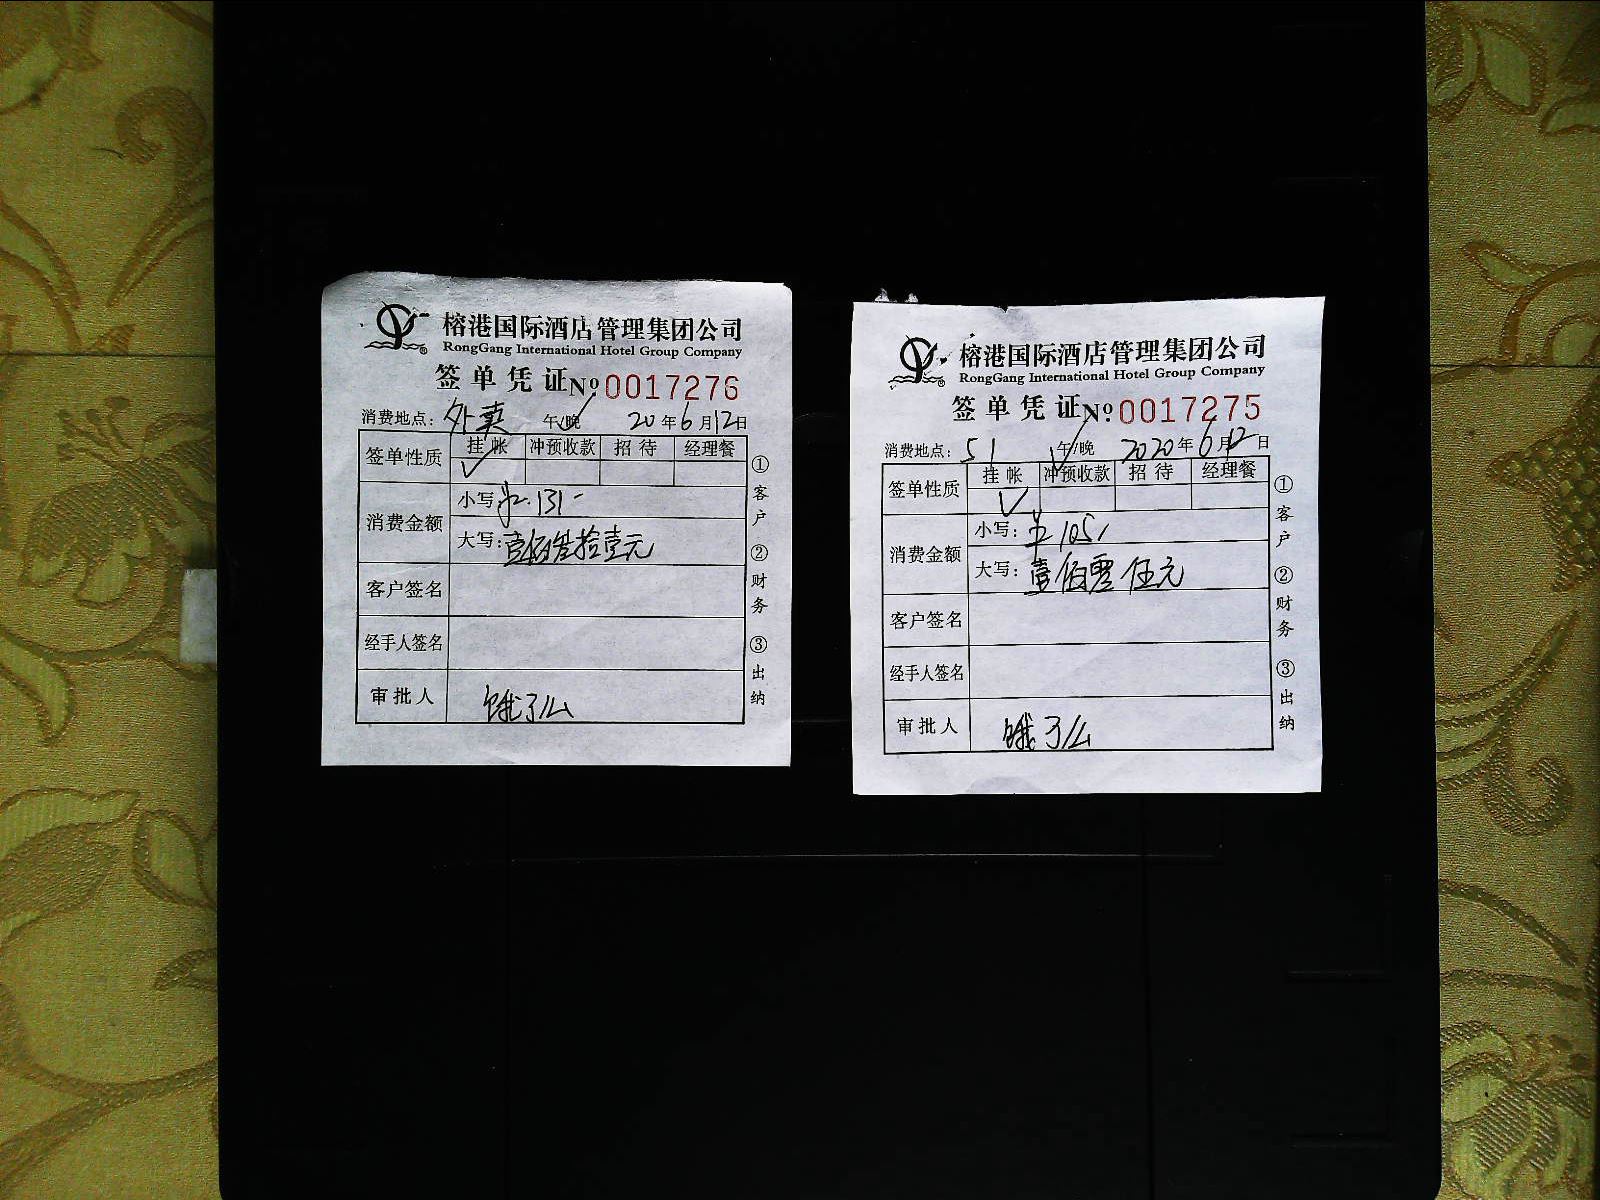 榕港国际酒店管理集团公司
RongGang International Hotel Group Company
签单凭证 No 0017276
消费地点: 外卖 午/晚 20年6月12日
签单性质 挂帐 冲预收款 招待 经理餐
消费金额
小写: 131-
大写: 壹佰叁拾壹元
客户签名
经手人签名
审批人 饿了么
①客户 ②财务 ③出纳
榕港国际酒店管理集团公司
RongGang International Hotel Group Company
签单凭证 No 0017275
消费地点: 51 午/晚 2020年6月12日
签单性质 挂帐 冲预收款 招待 经理餐
消费金额
小写: 105/
大写: 壹佰零伍元
客户签名
经手人签名
审批人 饿了么
①客户 ②财务 ③出纳